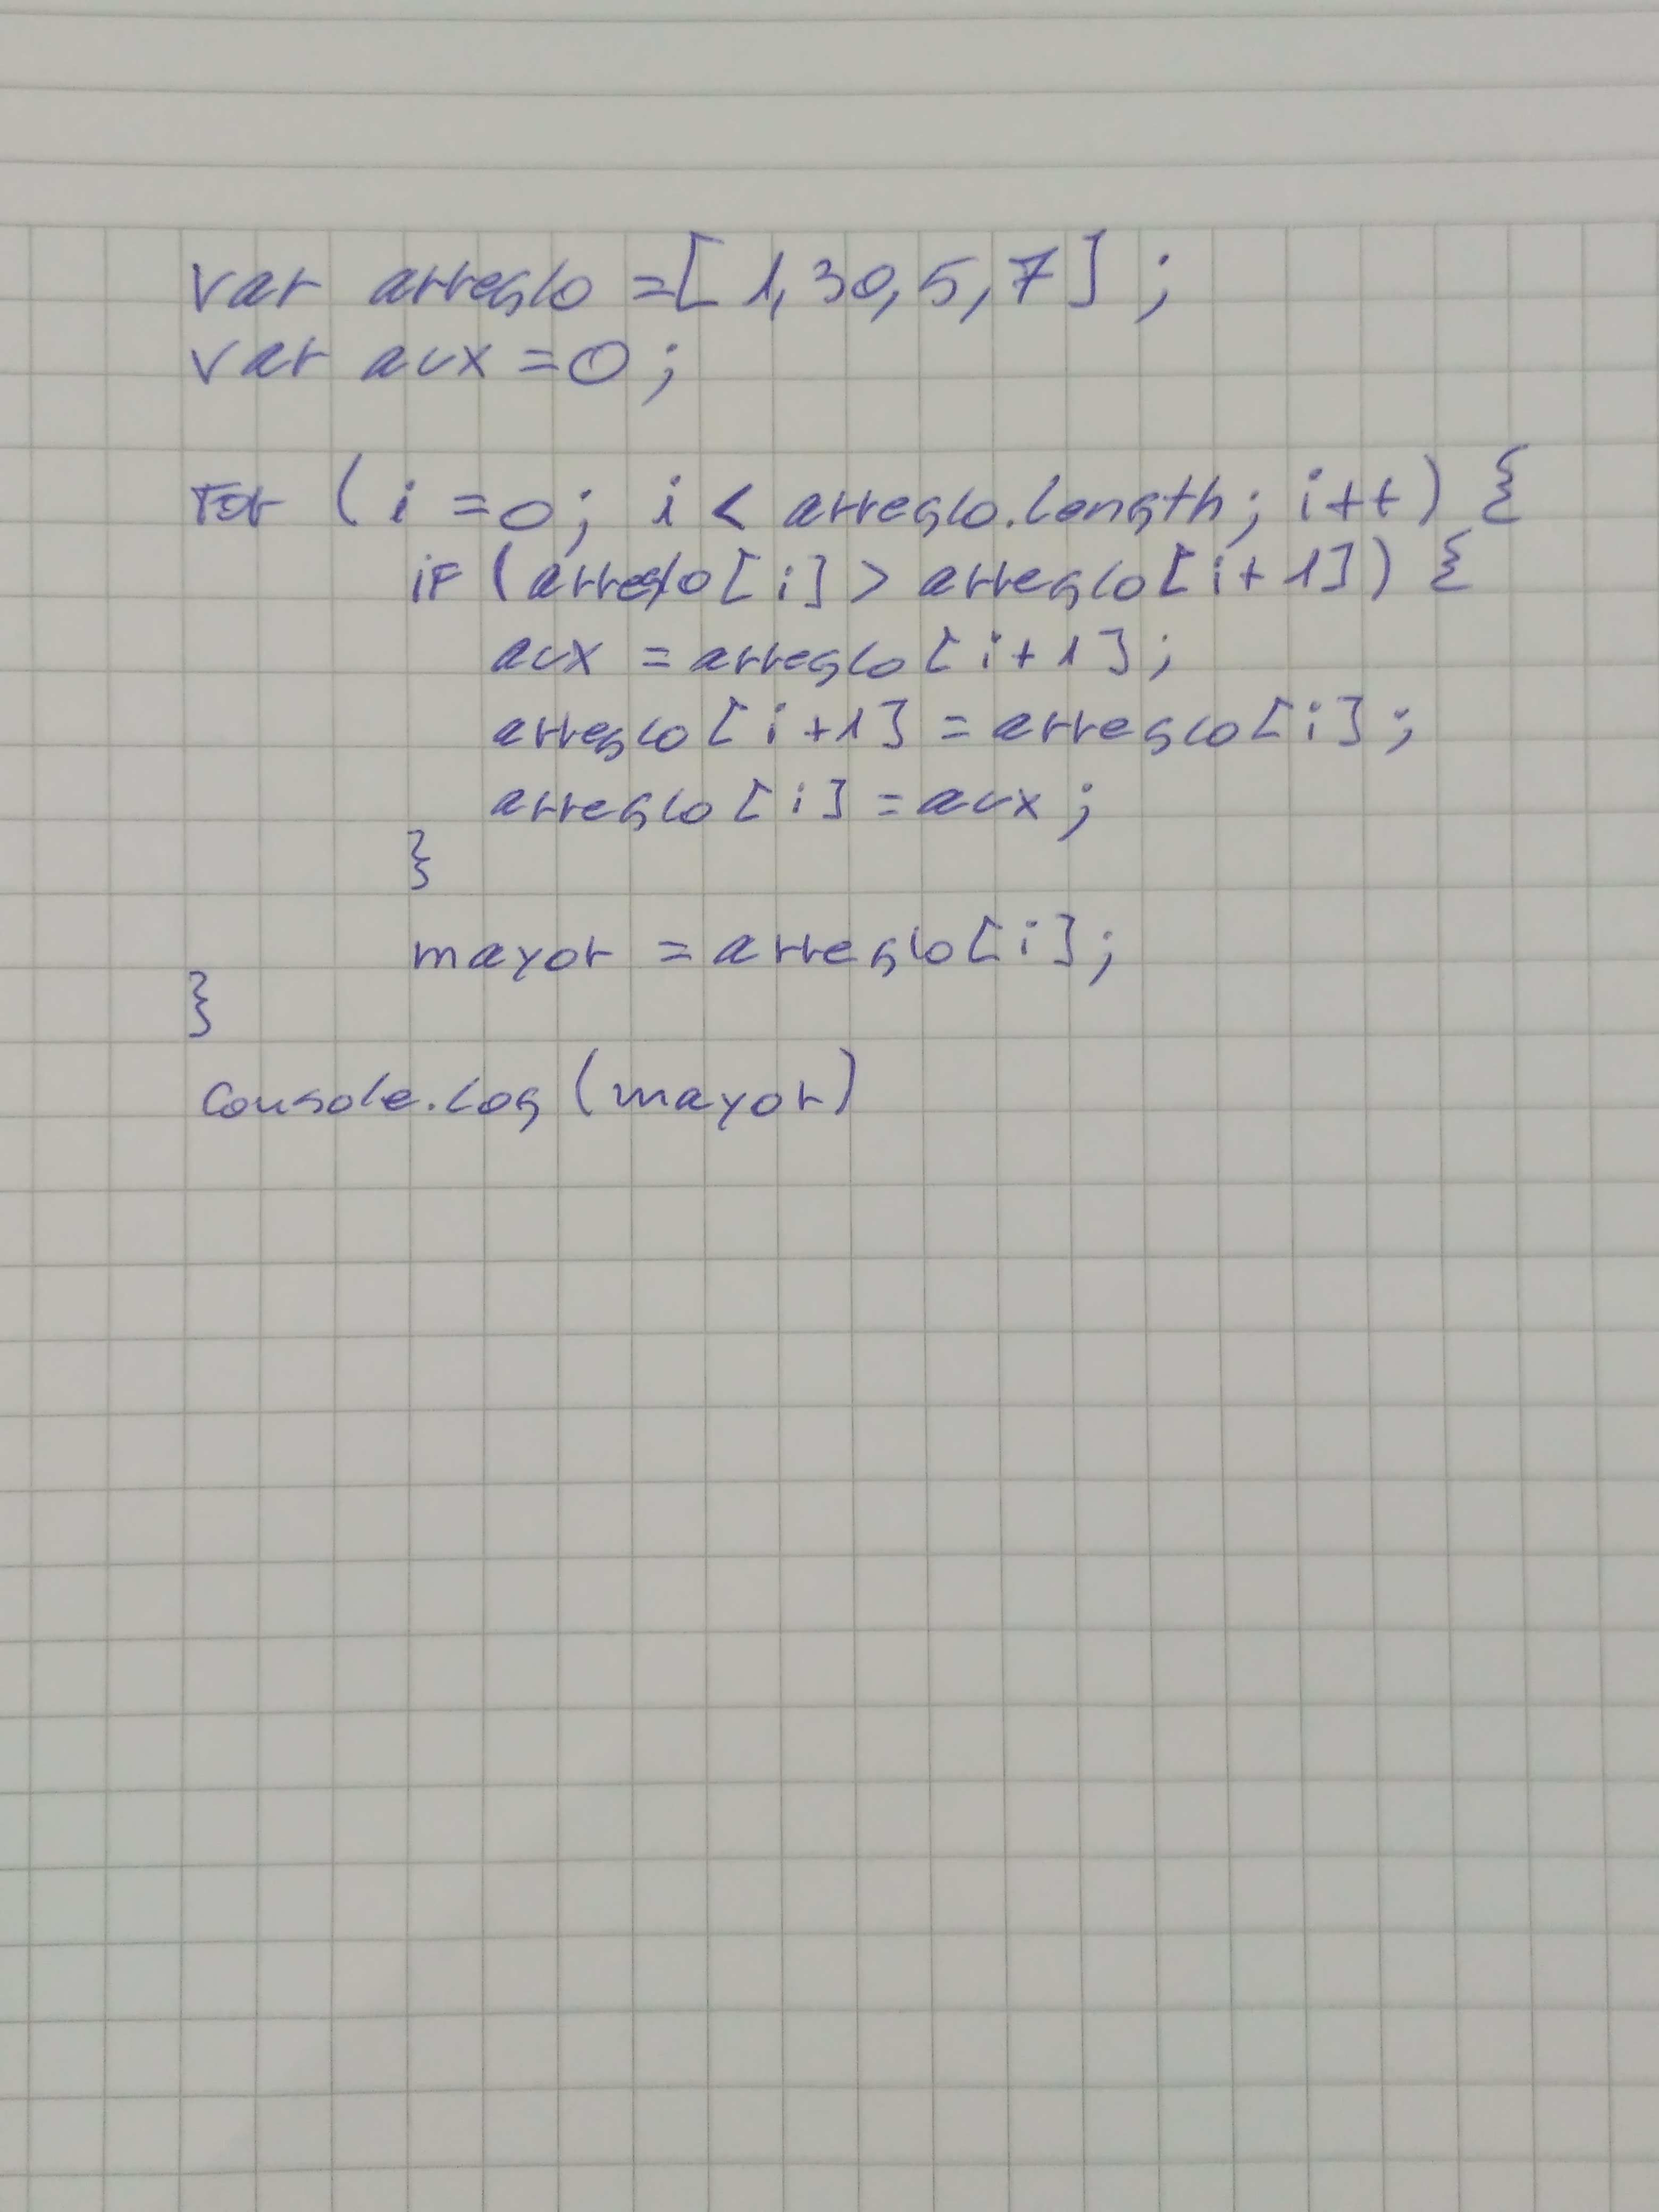 var arreglo =[1,30,5,7];
var aux =0;
For (i =0; i < arreglo.length; i++) {
if (arreglo[i] > arreglo[i+1]) {
aux = arreglo[i+1];
arreglo[i+1] = arreglo[i];
arreglo[i] = aux;
}
mayor = arreglo[i];
}
console.log (mayor)